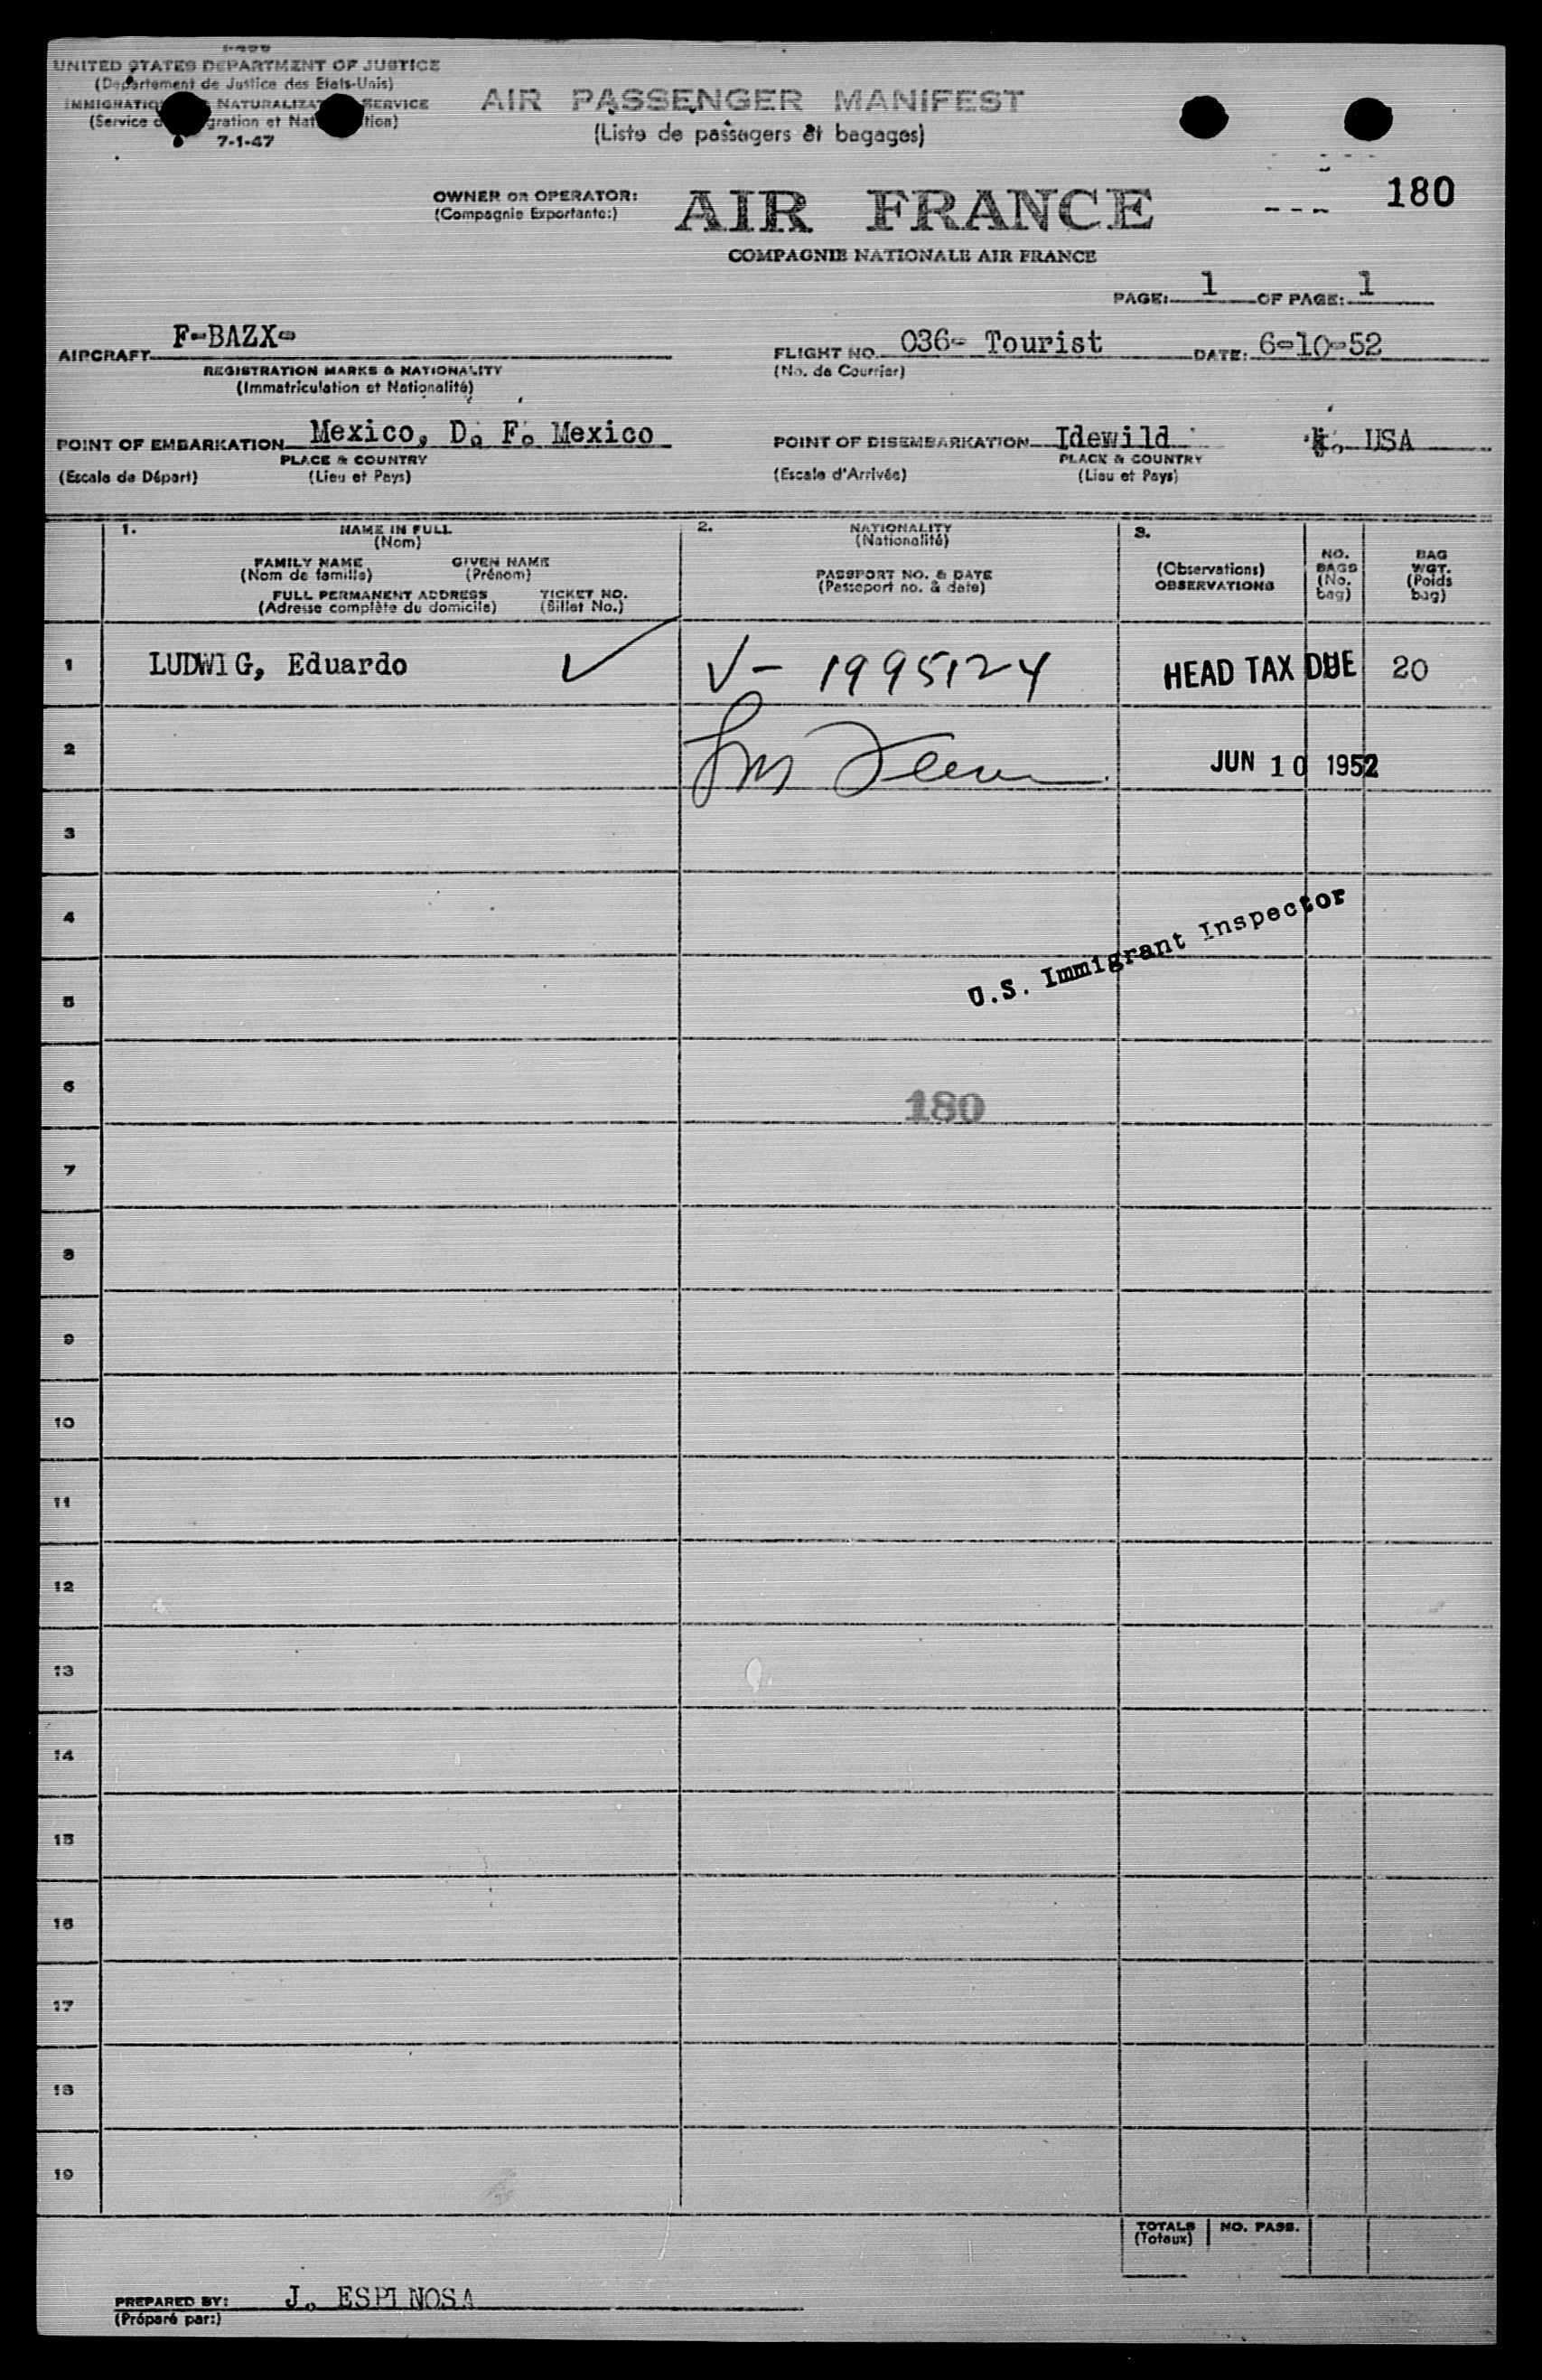 I-466
UNITED STATES DEPARTMENT OF JUSTICE
(Departement de Justice des Etats-Unis)
IMMIGRATION NATURALIZATION SERVICE
(Service d'Immigration et Naturalisation)
7-1-47
AIR PASSENGER MANIFEST
(Liste de passagers et bagages)
180
OWNER OR OPERATOR: AIR FRANCE
(Compagnie Exportante:)
COMPAGNIE NATIONALE AIR FRANCE
PAGE: 1 OF PAGE: 1
AIRCRAFT F-BAZX-
REGISTRATION MARKS & NATIONALITY
(Immatriculation et Nationalité)
FLIGHT NO. 036- Tourist DATE: 6-10-52
(No. de Courrier)
POINT OF EMBARKATION Mexico, D. F. Mexico
PLACE & COUNTRY
(Escale de Départ) (Lieu et Pays)
POINT OF DISEMBARKATION Idewild USA
PLACE & COUNTRY
(Escale d'Arrivée) (Lieu et Pays)
1. NAME IN FULL
(Nom)
FAMILY NAME GIVEN NAME
(Nom de famille) (Prénom)
FULL PERMANENT ADDRESS TICKET NO.
(Adresse complète du domicile) (Billet No.)
2. NATIONALITY
(Nationalité)
PASSPORT NO. & DATE
(Passeport no. & date)
3.
(Observations)
OBSERVATIONS
NO.
BAGS
(No.
bag)
BAG
WGT.
(Poids
bag)
1 LUDWIG, Eduardo V- 1995124 HEAD TAX DUE 20
2 JUN 10 1952
3
4
U.S. Immigrant Inspector
5
6
180
7
8
9
10
11
12
13
14
15
16
17
18
19
TOTALS NO. PASS.
(Totaux)
PREPARED BY: J. ESPINOSA
(Préparé par:)